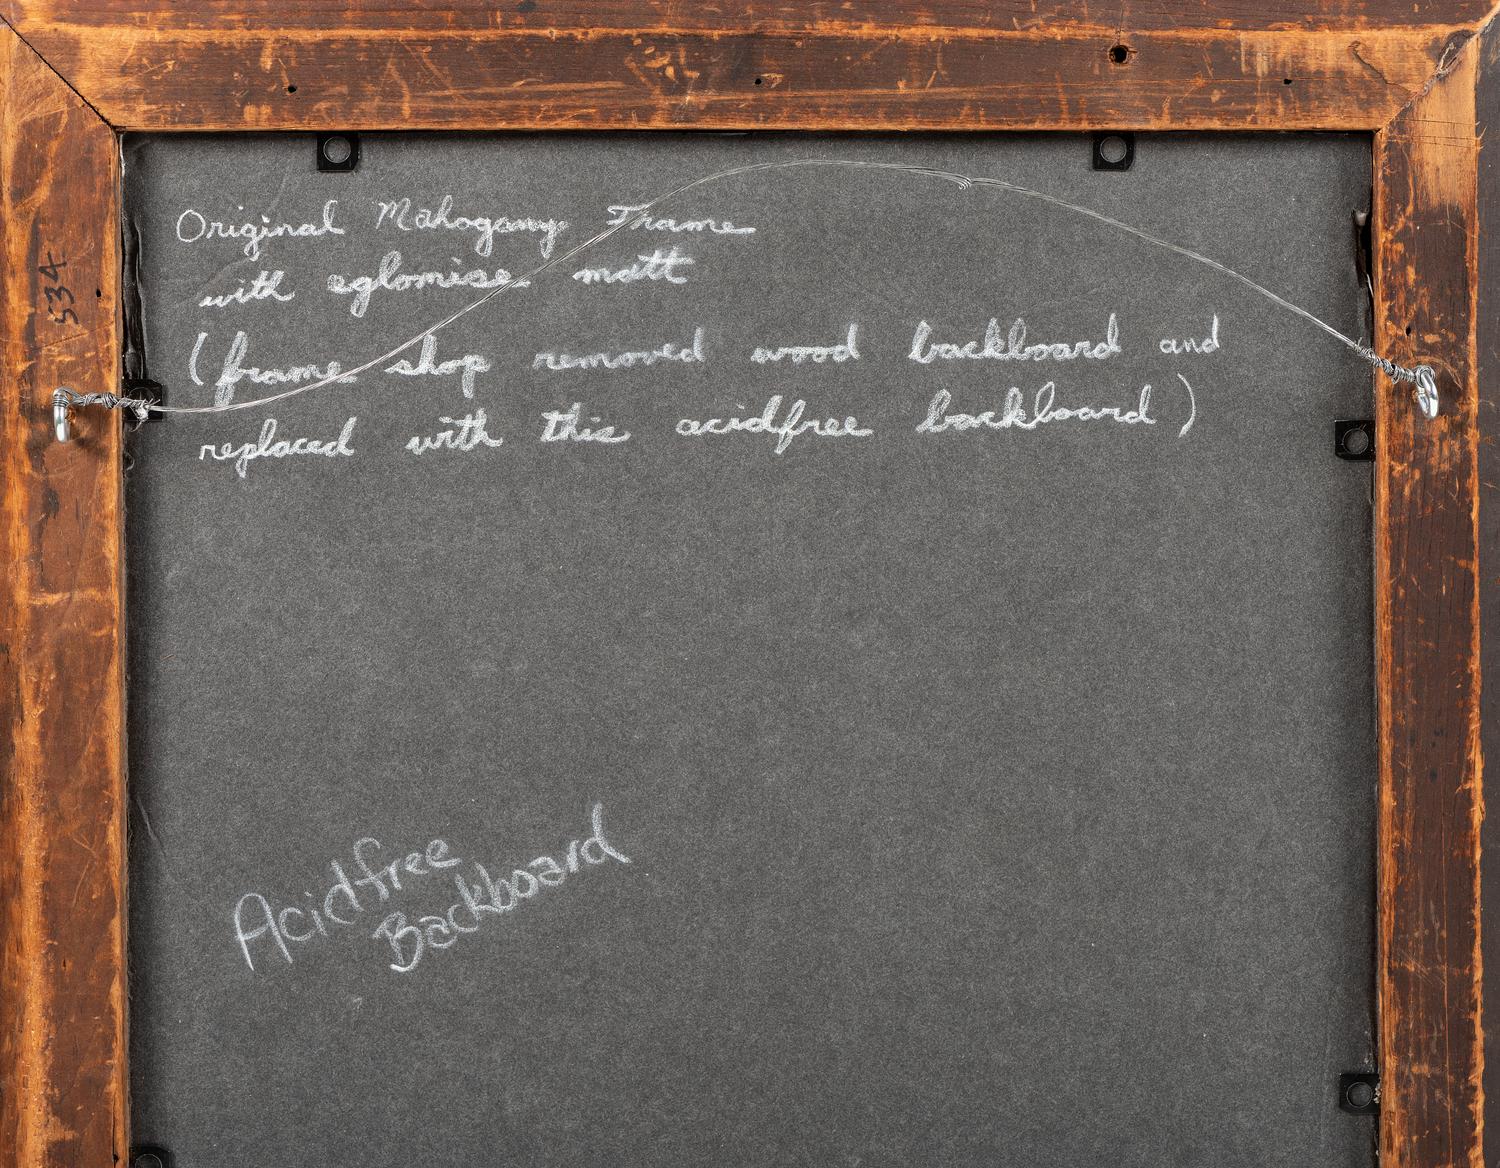 Original Mahogany Frame
with eglomise matt
(frame shop removed wood backboard and
replaced with this acidfree backboard)
534
Acidfree
Backboard